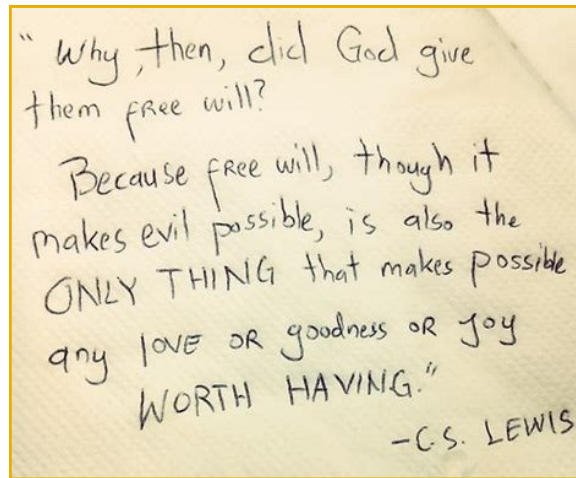 "Why, then, did God give
them free will?
Because free will, though it
makes evil possible, is also the
ONLY THING that makes possible
any love OR goodness OR joy
WORTH HAVING."
-C.S. LEWIS